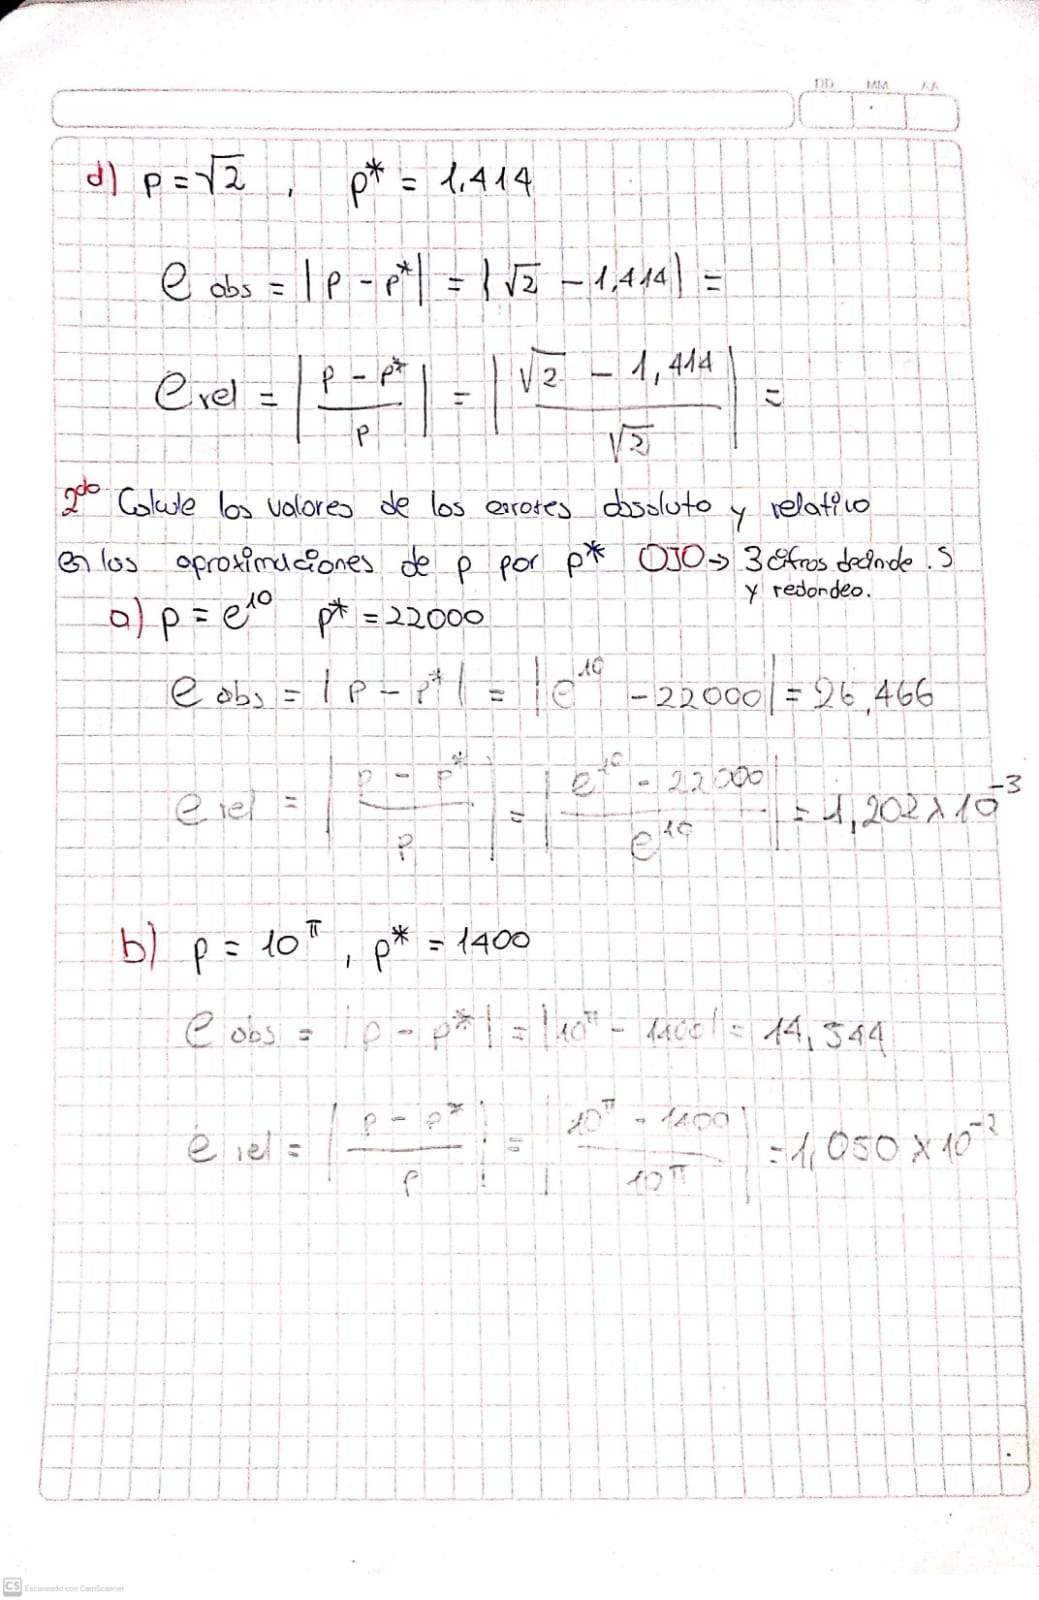 DD MM AA
d) p = √2 , p* = 1,414
e abs = |p - p*| = |√2 - 1,414| =
e rel = |(p - p*)/p| = |(√2 - 1,414)/√2| =
2do Calcule los valores de los errores absoluto y relativo
en las aproximaciones de p por p* OJO → 3 cifras decimales
y redondeo.
a) p = e^10 p* = 22000
e abs = |p - p*| = |e^10 - 22000| = 26,466
e rel = |(p - p*)/p| = |(e^10 - 22000)/e^10| = 1,202 x 10^-3
b) p = 10^π , p* = 1400
e abs = |p - p*| = |10^π - 1400| = 14,544
e rel = |(p - p*)/p| = |(10^π - 1400)/10^π| = 1,050 x 10^-2
CS Escaneado con CamScanner